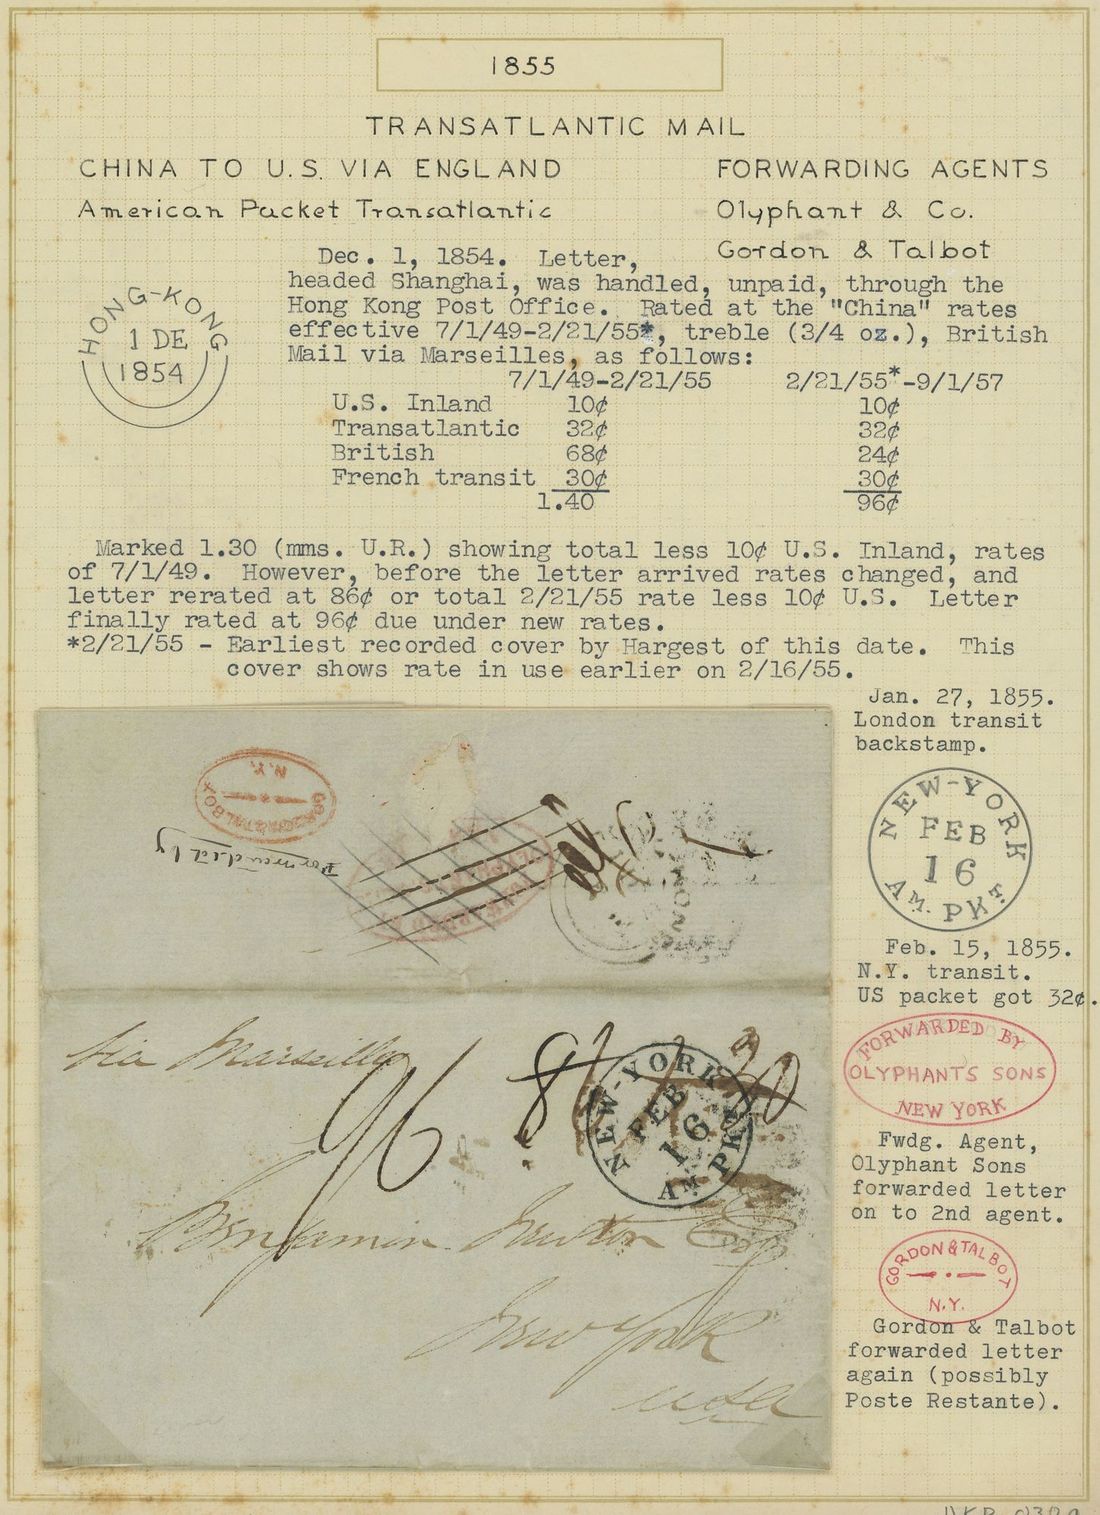 1855
TRANSATLANTIC MAIL
CHINA TO U.S. VIA ENGLAND
American Packet Transatlantic
FORWARDING AGENTS
Olyphant & Co.
Gordon & Talbot
HONG-KONG
1 DE
1854
Dec. 1, 1854. Letter,
headed Shanghai, was handled, unpaid, through the
Hong Kong Post Office. Rated at the "China" rates
effective 7/1/49-2/21/55*, treble (3/4 oz.), British
Mail via Marseilles, as follows:
7/1/49-2/21/55 2/21/55*-9/1/57
U.S. Inland 10¢ 10¢
Transatlantic 32¢ 32¢
British 68¢ 24¢
French transit 30¢ 30¢
1.40 96¢
Marked 1.30 (mms. U.R.) showing total less 10¢ U.S. Inland, rates
of 7/1/49. However, before the letter arrived rates changed, and
letter rerated at 86¢ or total 2/21/55 rate less 10¢ U.S. Letter
finally rated at 96¢ due under new rates.
*2/21/55 - Earliest recorded cover by Hargest of this date. This
cover shows rate in use earlier on 2/16/55.
Jan. 27, 1855.
London transit
backstamp.
NEW-YORK
FEB
16
AM. PKT.
Feb. 15, 1855.
N.Y. transit.
US packet got 32¢.
FORWARDED BY
OLYPHANT'S SONS
NEW YORK
Fwdg. Agent,
Olyphant Sons
forwarded letter
on to 2nd agent.
GORDON & TALBOT
N.Y.
Gordon & Talbot
forwarded letter
again (possibly
Poste Restante).
GORDON & TALBOT
N.Y.
Forwarded by
via Marseilles
96
NEW-YORK
FEB
16
AM PKT
Benjamin Esq
New York
USA